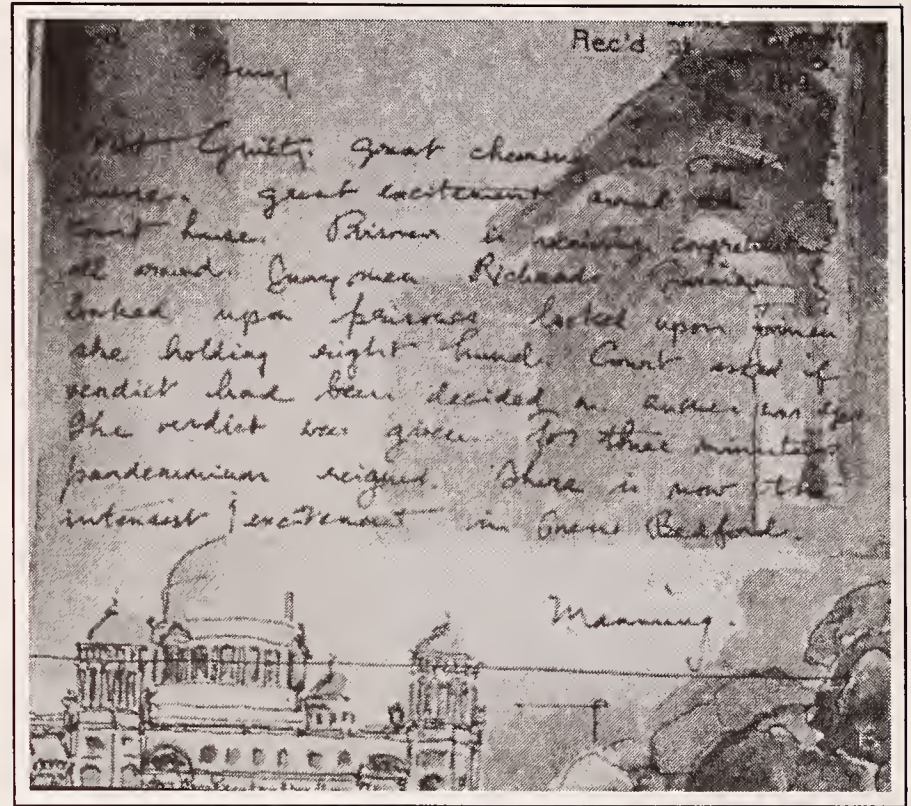 Rec'd at
Not Guilty. Great cheering in court
house. great excitement around the
Court house. Prisoner is receiving congratulations
all around. Jurymen Richards Foreman
looked upon prisoner looked upon
she holding right hand. Court asked if
verdict had been decided on answer was yes
The verdict was given. for three minutes
pandemonium reigned. There is now the
intensest excitement in New Bedford.
Manning.